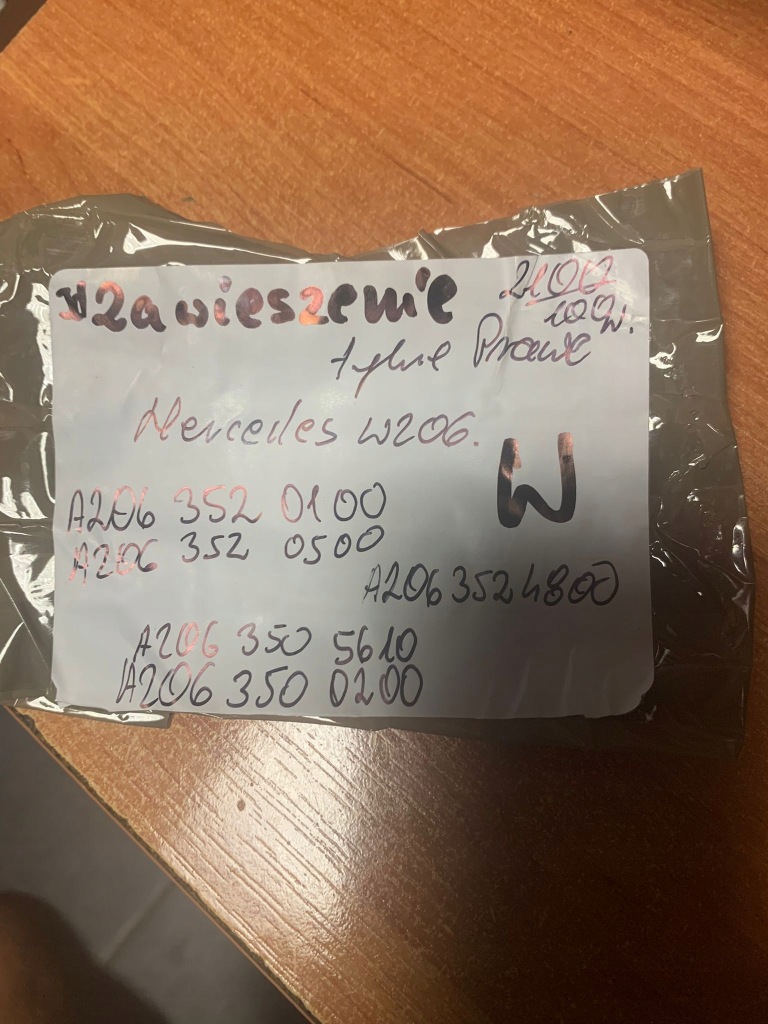 Zawieszenie
tylne Prawe
Mercedes W206.
W
A206 352 0100
A206 352 0500
A206 352 4800
A206 350 5610
A206 350 0200